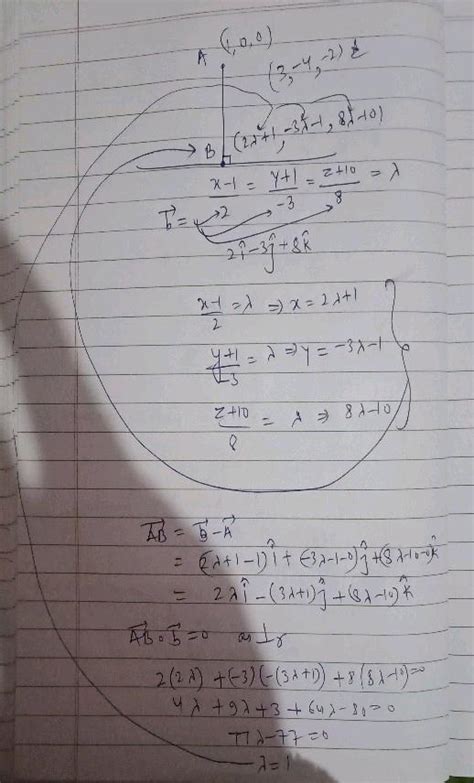 A (1,0,0)
(3,-4,-2)
B (2λ+1, -3λ-1, 8λ-10)
x-1/2 = y+1/-3 = z+10/8 = λ
b⃗ =
2î-3ĵ+8k̂
x-1/2 = λ ⇒ x = 2λ+1
y+1/-3 = λ ⇒ y = -3λ-1
z+10/8 = λ ⇒ 8λ-10
AB⃗ = B⃗ - A⃗
= (2λ+1-1)î + (-3λ-1-0)ĵ + (8λ-10-0)k̂
= 2λî - (3λ+1)ĵ + (8λ-10)k̂
AB⃗ • b⃗ = 0 as ⊥r
2(2λ) + (-3)(-(3λ+1)) + 8(8λ-10) = 0
4λ + 9λ + 3 + 64λ - 80 = 0
77λ - 77 = 0
λ = 1